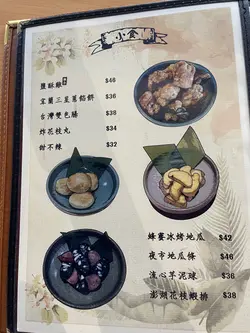 小食
鹽酥雞 $46
宜蘭三星蔥餡餅 $36
台灣雙色腸 $38
炸花枝丸 $34
甜不辣 $32
蜂蜜冰烤地瓜 $42
夜市地瓜條 $46
流心芋泥球 $38
澎湖花枝蝦排 $38